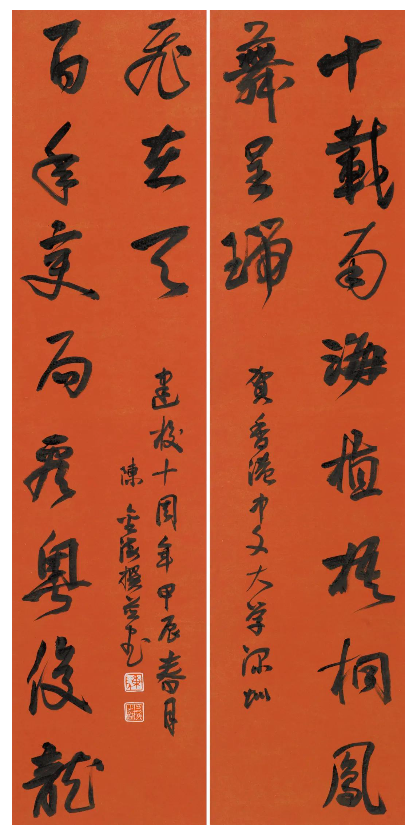 十載南海植梧桐鳳
舞呈瑞
賀香港中文大学深圳
百年变局粤俊龍
飛在天
建校十周年甲辰春月
陳金海撰并书